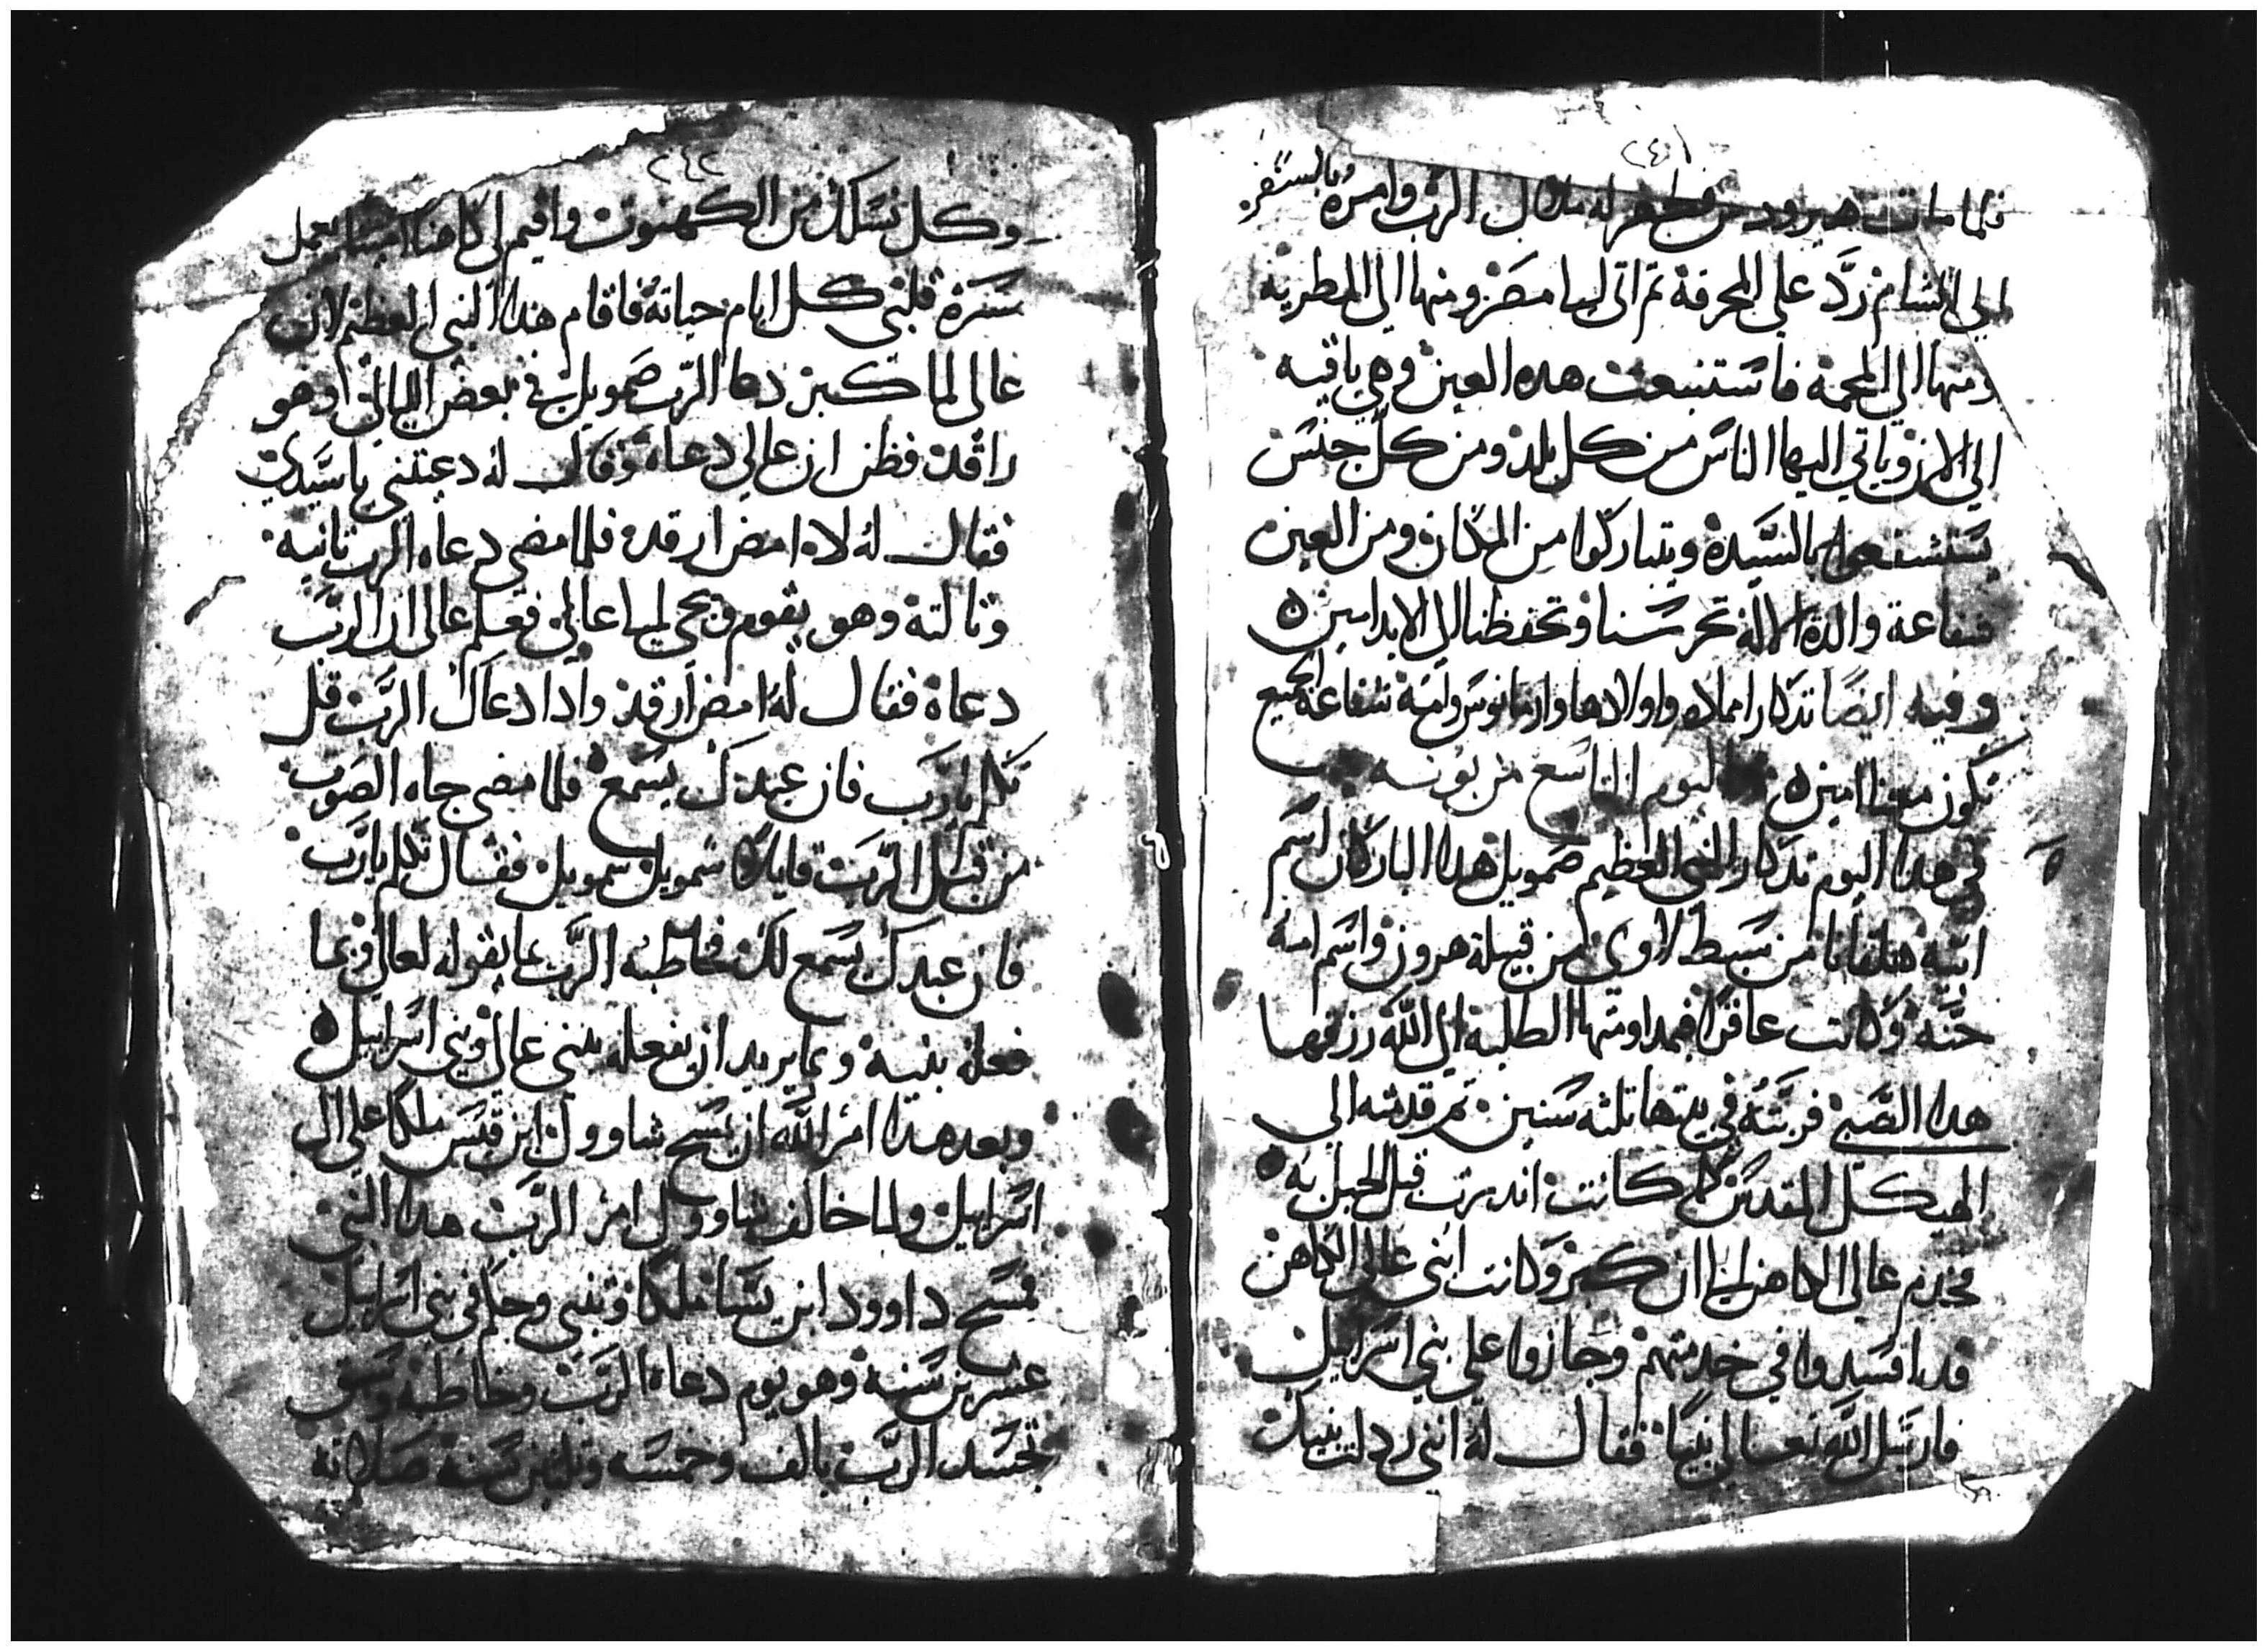 ٢٤١
فلما مات هيرودس ظهر له ملاك الرب وامره بالسفر
الي الشام ردّ علي المحرقة تم اتى ليا مصر ومنها الي المطرية
ومنها الي المحمة فاستنبعت هده العين وهي باقيه
الي الان وياتي اليها الناس من كل بلد ومن كل جنس
يستشفعوا بالسيدة ويتباركوا من المكان ومن العين
شفاعة والدة الاله تحرسنا وتحفظنا الي الابد امين ه
وفيه ايضًا تدكار امملاده واولادها وارمانوس وامة شفاعة الجميع
تكون معنا امين ه اليوم التاسع من بونه
في هدا اليوم تدكار النبي العظيم صمويل هدا البار كان اسم
ابيه هلقانا من سبط لاوي من قبيلة هرون واسم امة
حنّه وكانت عاقرًا فبمداومتها الطلبة الي الله رزقها
هدا الصبي فربّته في بيتها تلته سنين تم قدمته الي
الهيكل المقدس كما كانت اندرت قبل الحبل به
فخدم عالي الكاهن الي ان كبر وكانت ابني عالي الكاهن
قد افسدوا في خدمتهم وجازوا علي بني اسراييل
فارسل الله تعالي نبيًا فقال له انني ردلت بنيك
٢٤٢
وكل نسلك من الكهنوت واقيم لي كاهنا امينا يعمل
مسرة قلبي كل ايام حياته فاقام هدا النبي العظيم لان
عالي لما كبر دعا الرب صمويل في بعض الليالي ادهو
راقد فظن ان عالي دعاه وقال له دعيتني يا سيدي
فقال له لا امض ارقد فلما مضي دعاه الرب تانيه
وتالتة وهو يقوم ويجي ليا عالي فعلم عالي ان الرب
دعاه فقال له امض ارقد وادا دعاك الرب قل
تكلم يا رب فان عبدك يسمع فلما مضي جاه الصوت
من قبل الرب قايلا شمويل شمويل فقال تكلم يا رب
فان عبدك يسمع لك فخاطبه الرب بما يقوله لعالي وبما
فعله بنيه وبما يريد ان يفعله ببني عالي وبني اسراييل ه
وبعد هدا امر الله ان يمسح شاوول ابن قيس ملكا علي ال
اسراييل ولما خالف شاوول امر الرب هدا النبي
فمسح داوود ابن يسا ملكا وتنبي وحكم في بني اسراييل
عشرين سنة وهو يوم دعاه الرب وخاطبه وسبق
تجسد الرب بالف وخمسه وتلتين سنة صلاته